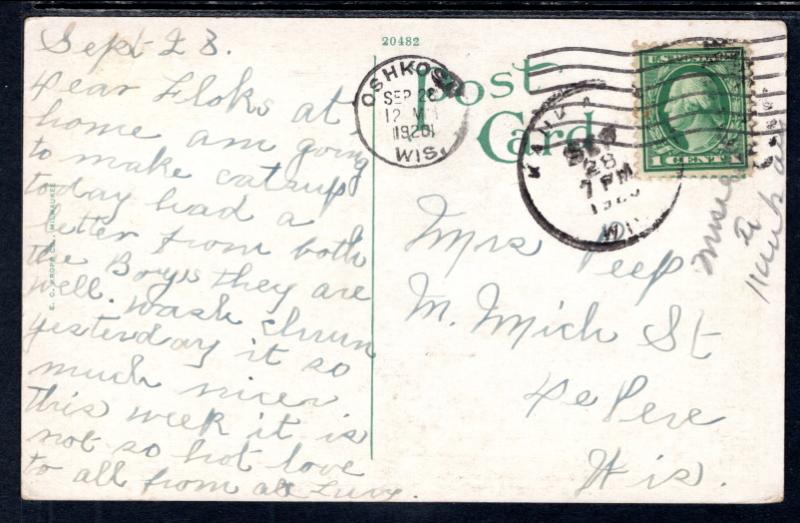 Sept 28.
Dear Floks at
home am going
to make catsup
today had a
letter from both
the Boys they are
well. wash
yesterday it so
much nicer
this week it is
not so hot love
to all from all
E. C. KROPP CO., MILWAUKEE
20482
Post
Card
OSHKOSH
SEP 28
12 M
1920
WIS.
SEP
28
7 PM
1920
WIS.
U.S. POSTAGE
1 CENT 1
Mrs Peep
M. Mich St
De Pere
Wis.